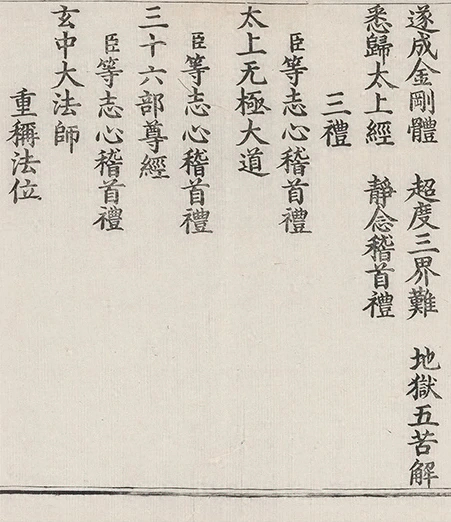 遂成金剛體　超度三界難　地獄五苦解
悉歸太上經　靜念稽首禮
三禮
臣等志心稽首禮
太上无極大道
臣等志心稽首禮
三十六部尊經
臣等志心稽首禮
玄中大法師
重稱法位